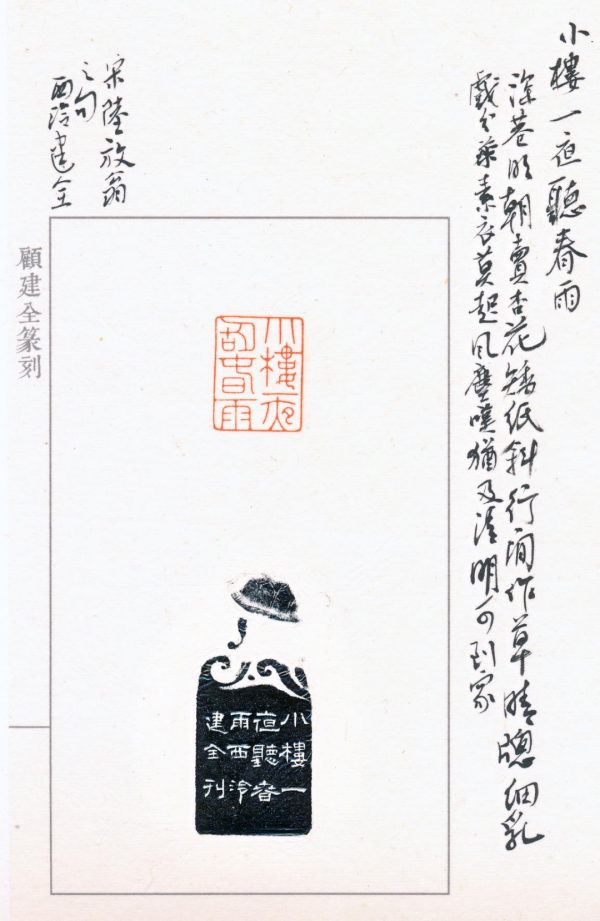 小樓一夜聽春雨
深巷明朝賣杏花矮紙斜行閒作草晴牕細乳
戲分茶素衣莫起風塵嘆猶及清明可到家
宋陸放翁
之句
西泠建全
顧建全篆刻
小樓一夜
聽春雨
小樓一
夜聽春
雨西泠
建全刊